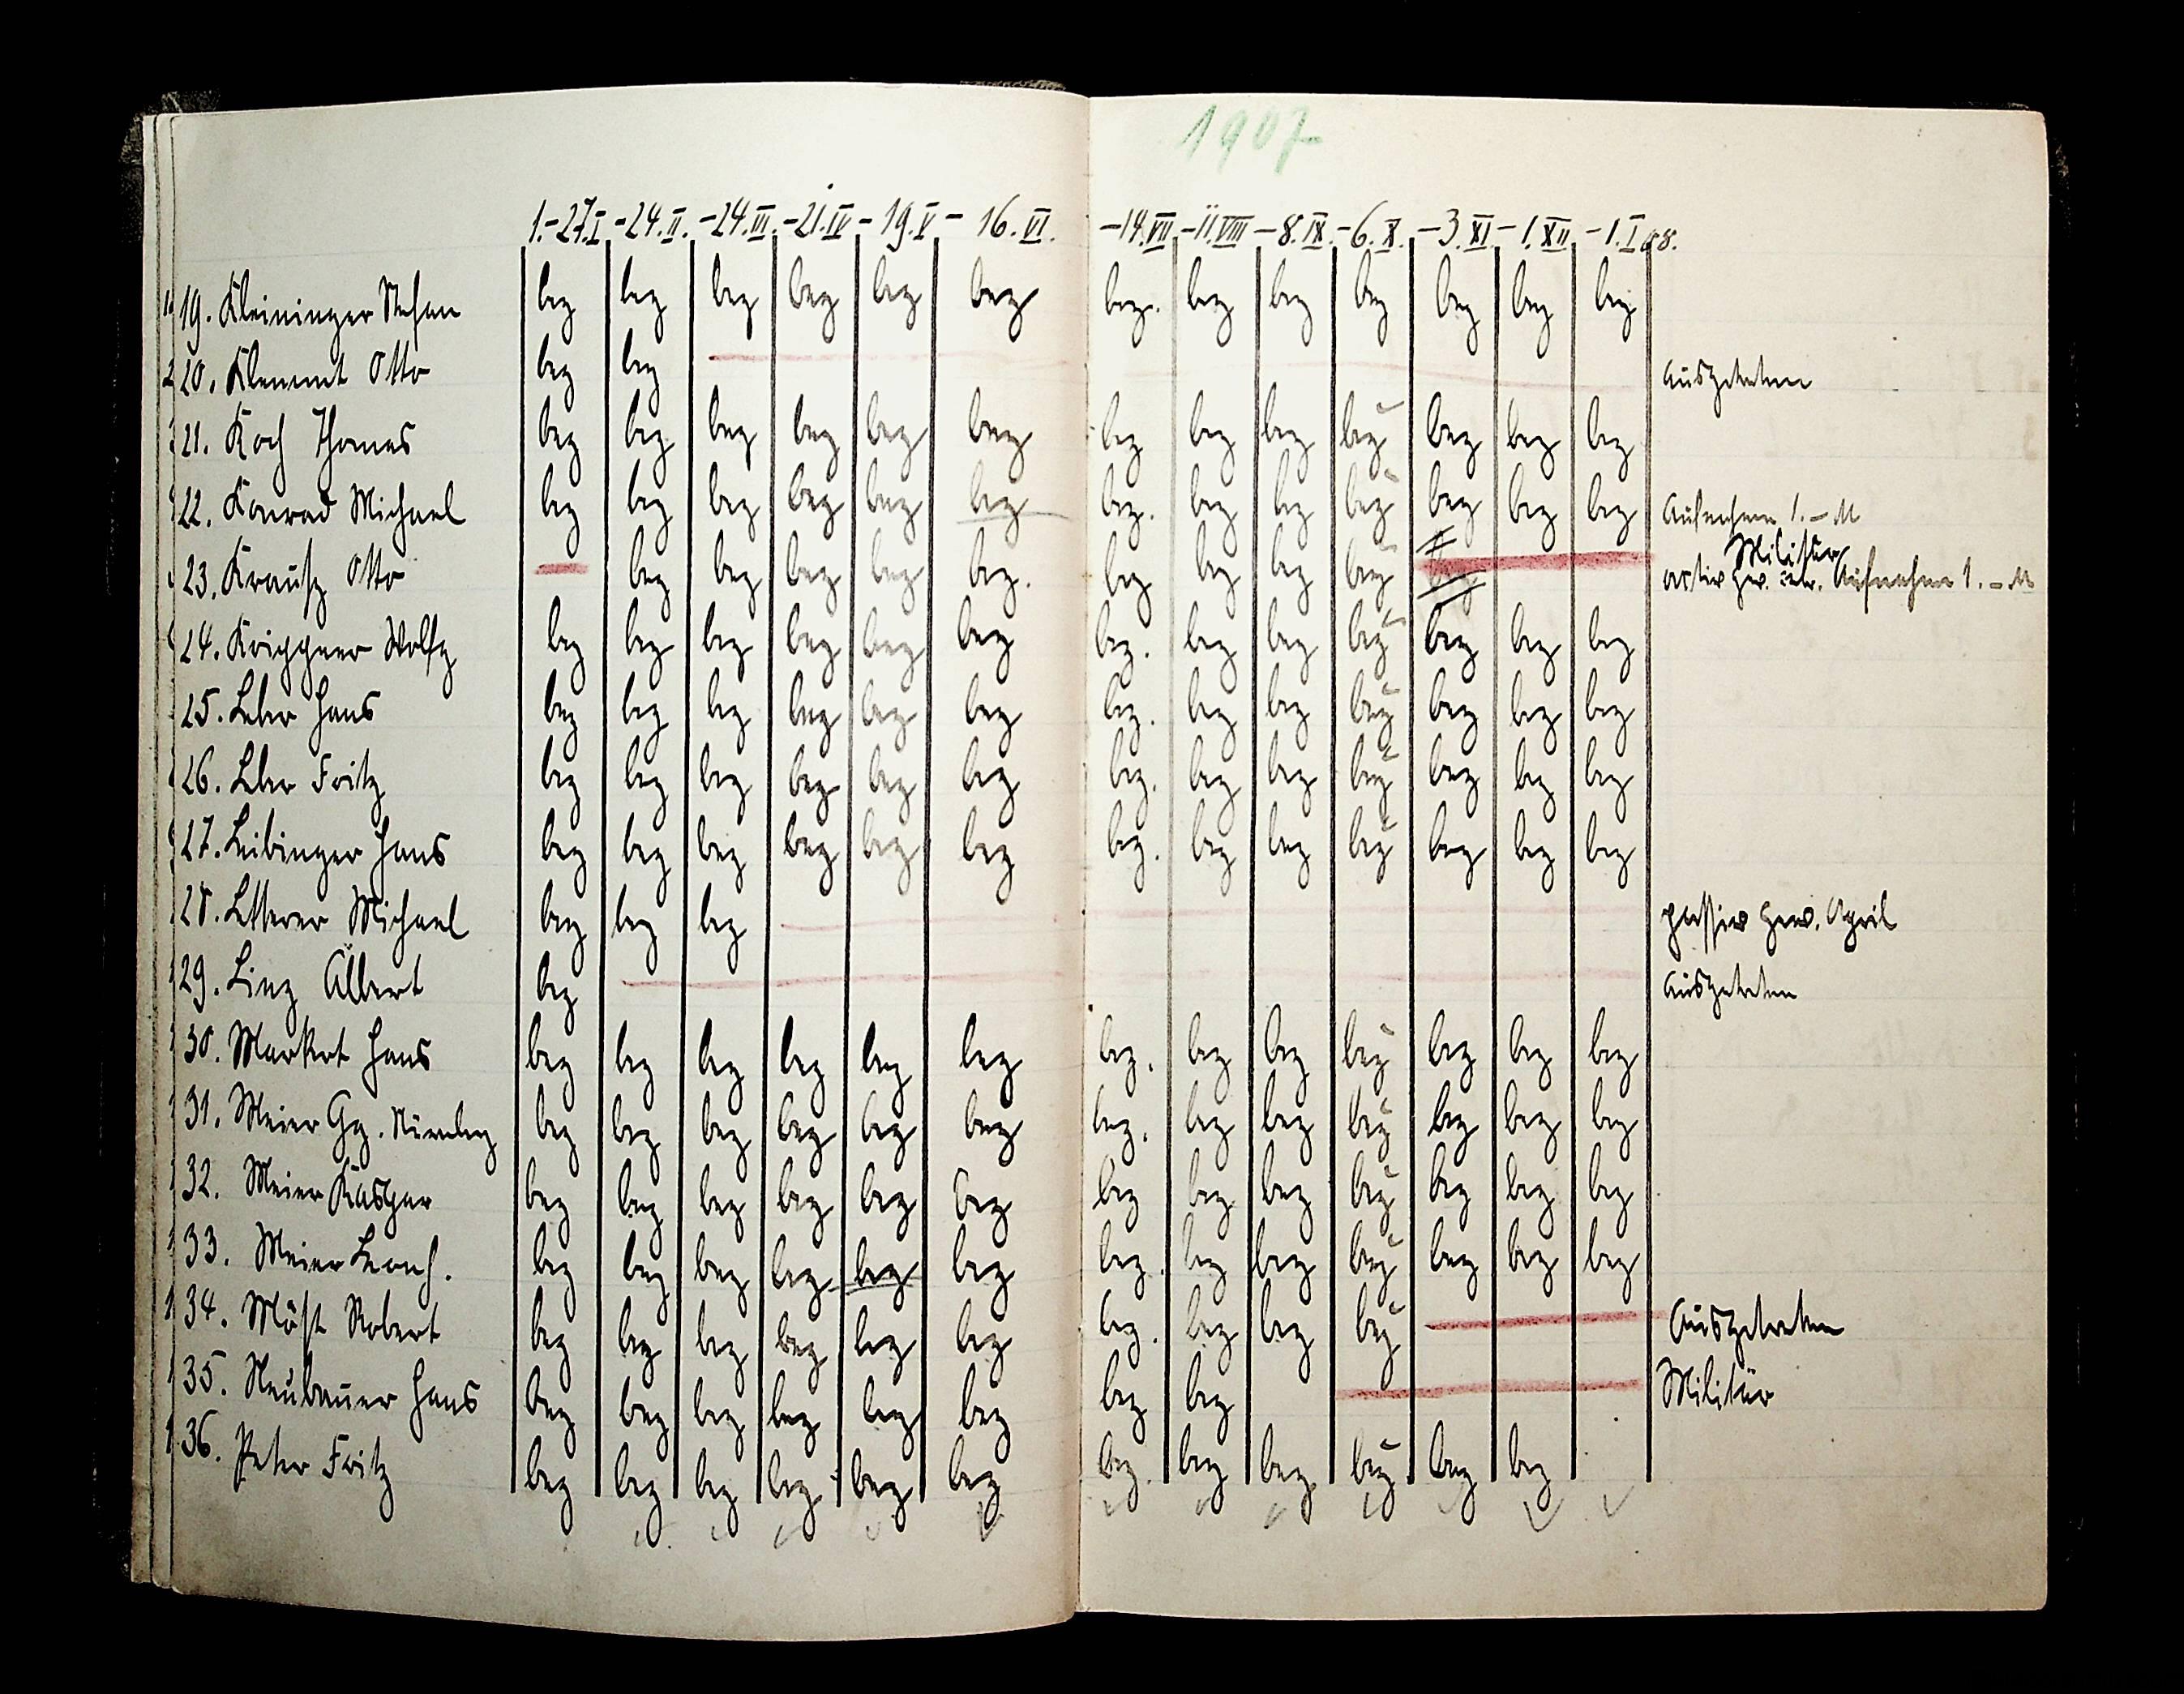 1907
1.-27.I -24.II. -24.III. -21.IV -19.V -16.VI. -14.VII -11.VIII -8.IX -6.X. -3.XI -1.XII -1.I 08.
19. Kleininger Stefan bez bez bez bez bez bez bez. bez bez bez bez bez bez
20. Klemmt Otto bez bez Ausgetreten
21. Koch Thomas bez bez bez bez bez bez bez bez bez bez bez bez bez
22. Konrad Michael bez bez bez bez bez bez bez. bez bez bez bez bez bez Aufnahme 1.- M
Militär
23. Krauß Otto bez bez bez bez bez. bez bez bez bez bez activ gew. Aufnahme 1.- M
24. Krippner Wolfg bez bez bez bez bez bez bez. bez bez bez bez bez bez
25. Leber Hans bez bez bez bez bez bez bez. bez bez bez bez bez bez
26. Leber Fritz bez bez bez bez bez bez bez. bez bez bez bez bez bez
27. Leibinger Hans bez bez bez bez bez bez bez. bez bez bez bez bez bez
28. Letterer Michael bez bez bez passiv gew. April
29. Linz Albert bez Ausgetreten
30. Markert Hans bez bez bez bez bez bez bez. bez bez bez bez bez bez
31. Meier Gg. Nürnberg bez bez bez bez bez bez bez. bez bez bez bez bez bez
32. Meier Kaspar bez bez bez bez bez bez bez bez bez bez bez bez bez
33. Meier Leonh. bez bez bez bez bez bez bez. bez bez bez bez bez bez
34. Möst Robert bez bez bez bez bez bez bez. bez bez bez Ausgetreten
35. Neubauer Hans bez bez bez bez bez bez bez bez Militär
36. Peter Fritz bez bez bez bez bez bez bez. bez bez bez bez bez